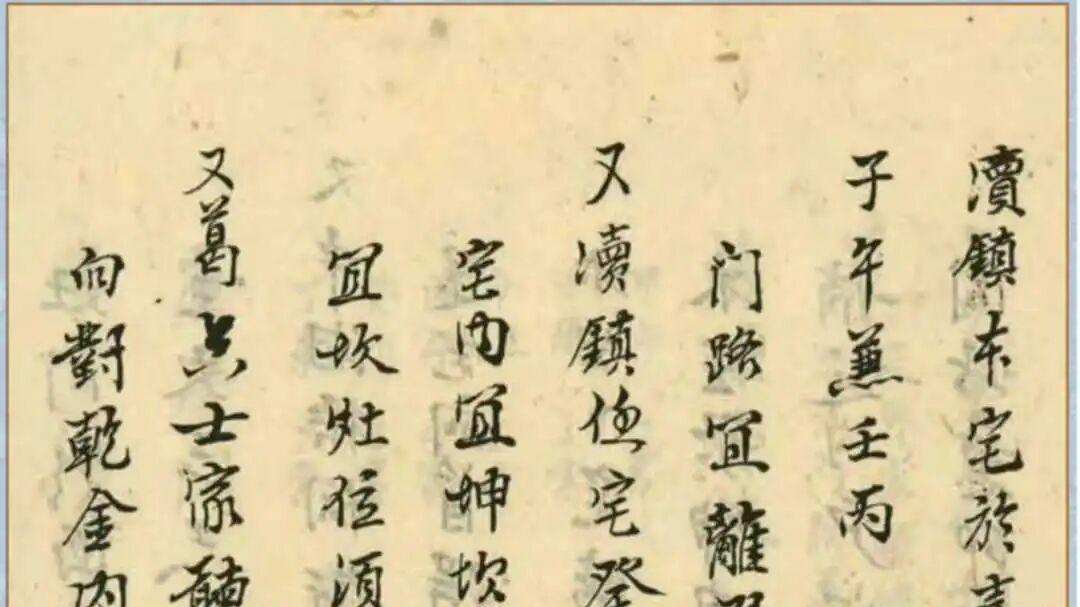 瀆鎮本宅於
子午兼壬丙
门路宜離
又瀆鎮住宅癸
宅内宜坤坎
宜坎灶位須
又葛 士家
向對乾金内